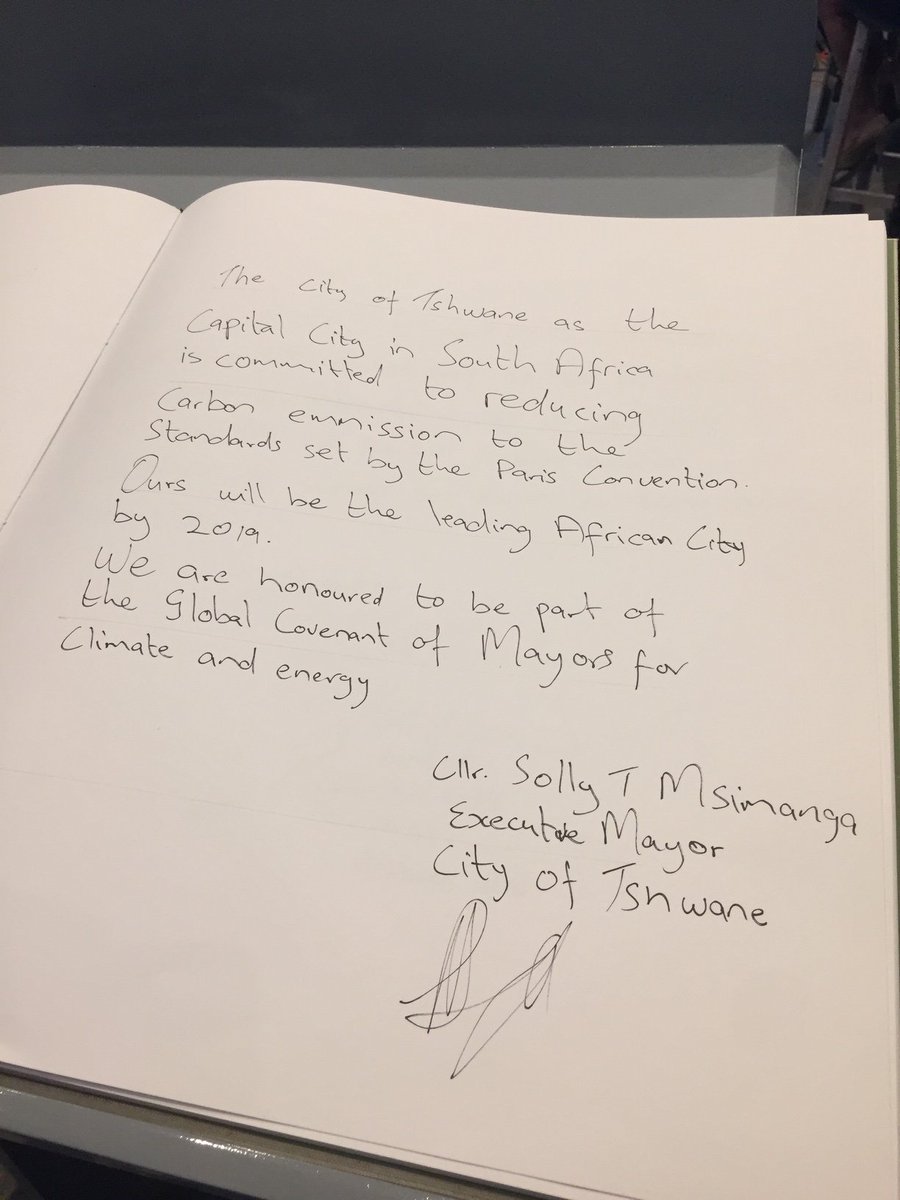 The City of Tshwane as the
Capital City in South Africa
is committed to reducing
Carbon emnission to the
Standards set by the Paris Convention.
Ours will be the leading African City
by 2019.
We are honoured to be part of
the Global Covenant of Mayors for
Climate and energy
Cllr. Solly T Msimanga
Executive Mayor
City of Tshwane